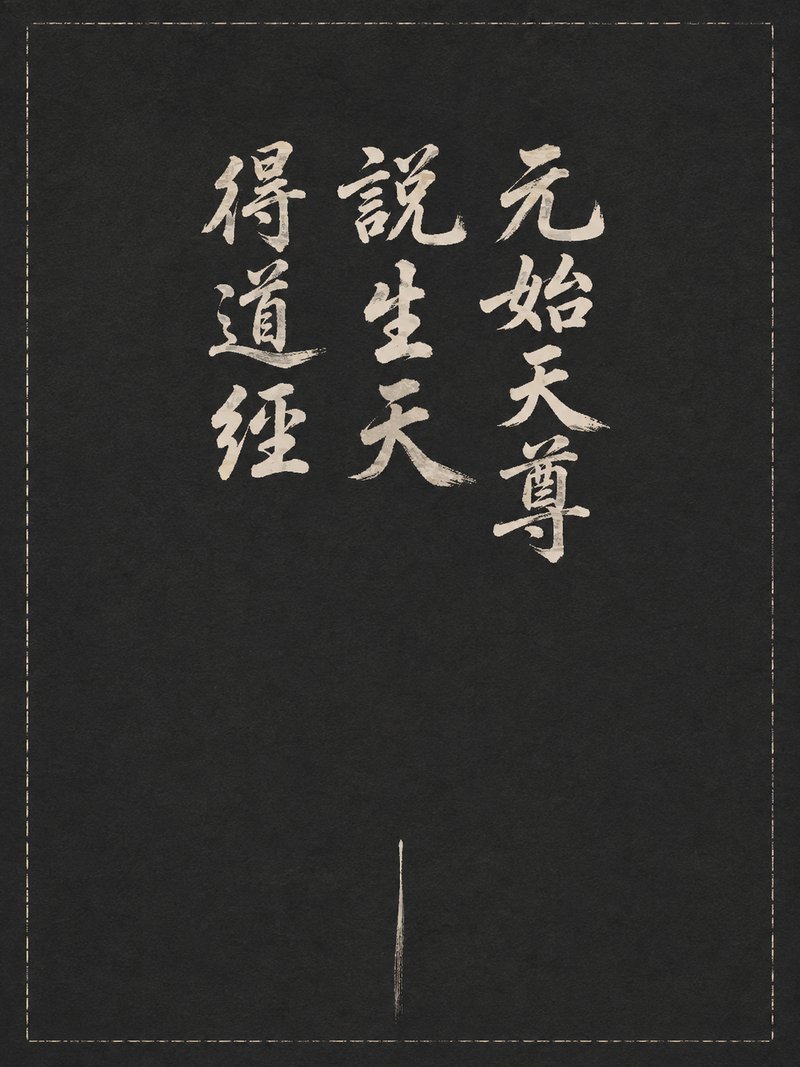 元始天尊
説生天
得道經